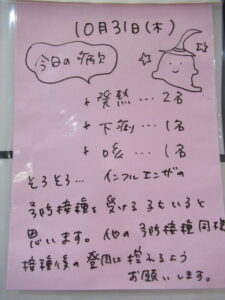 10月31日(木)
今日の病欠
+ 発熱…2名
+ 下痢…1名
+ 咳…1名
そろそろ… インフルエンザの
予防接種を受ける子もいると
思います。他の予防接種同様
接種後の登園は控えるよう
お願いします。